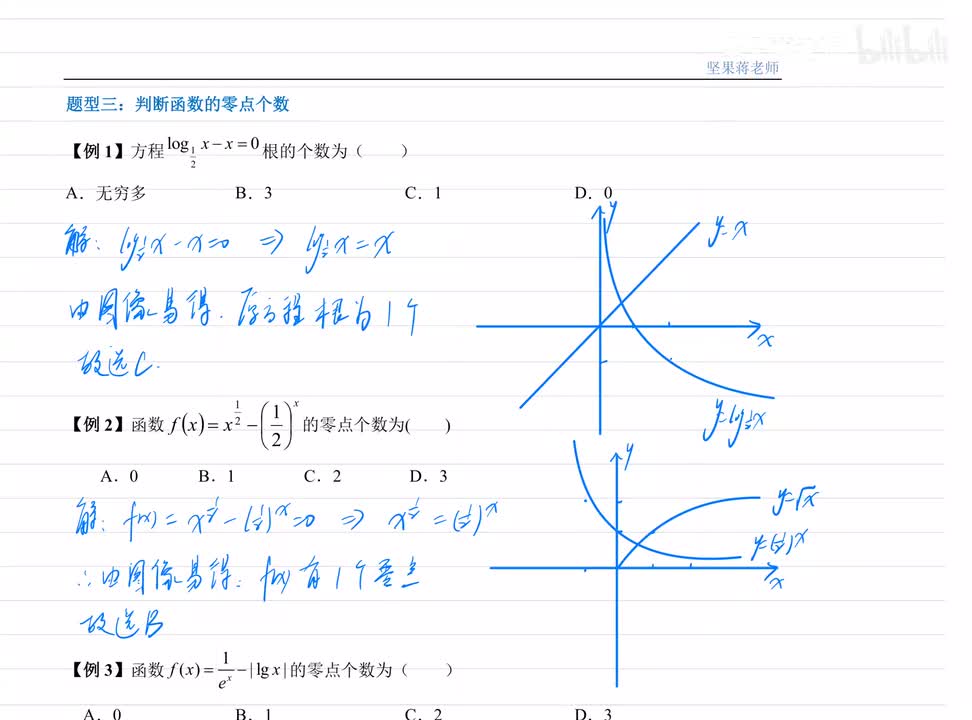 bilibili
坚果蒋老师
题型三：判断函数的零点个数
【例 1】方程 log_{1/2} x − x = 0 根的个数为（　　）
A．无穷多　B．3　C．1　D．0
解：log_{1/2} x − x = 0 ⇒ log_{1/2} x = x
由图像易得，原方程根为1个
故选C.
y
y=x
x
y=log_{1/2} x
【例 2】函数 f(x) = x^{1/2} − (1/2)^x 的零点个数为(　　)
A．0　B．1　C．2　D．3
解：f(x) = x^{1/2} − (1/2)^x = 0 ⇒ x^{1/2} = (1/2)^x
∴由图像易得：f(x)有1个零点
故选B
y
y=√x
y=(1/2)^x
x
【例 3】函数 f(x) = 1/e^x − | lg x | 的零点个数为（　　）
A．0　B．1　C．2　D．3